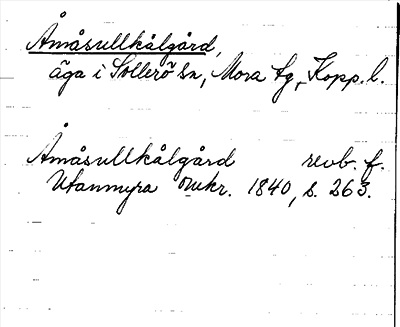 Åmåsullkålgård,
äga i Sollerö sn, Mora tg, Kopp. l.
Åmåsullkålgård revb. f.
Utanmyra omkr. 1840, s. 263.